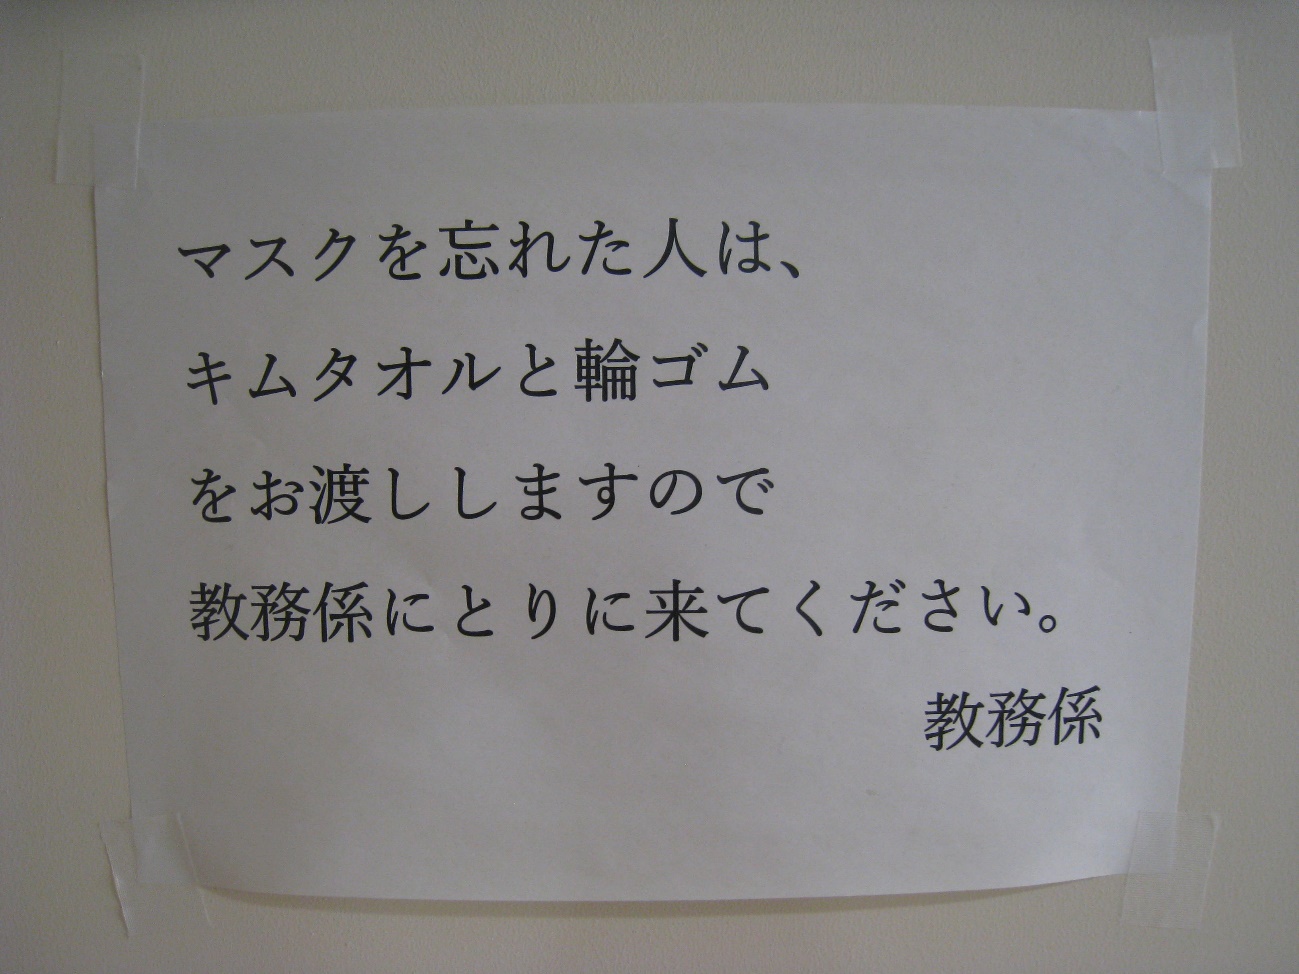 マスクを忘れた人は、
キムタオルと輪ゴム
をお渡ししますので
教務係にとりに来てください。
教務係